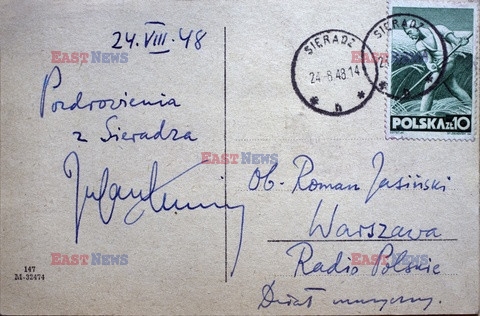 24.VIII.48
Pozdrowienia
z Sieradza
SIERADZ
24-8.48.14
b
SIERADZ
POLSKA ZŁ 10
Ob. Roman Jasiński
Warszawa
Radio Polskie
Dział muzyczny.
147
M-32474
EAST NEWS
EAST NEWS
EAST NEWS
EAST NEWS
EAST NEWS